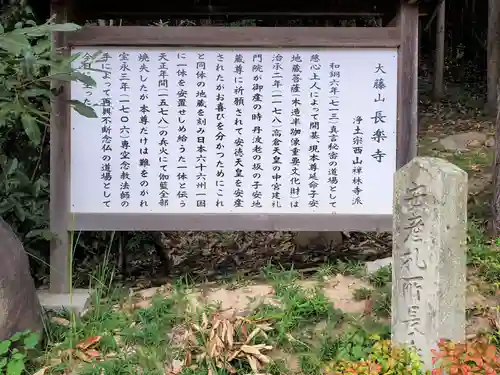 大藤山 長楽寺
浄土宗西山禅林寺派
和銅六年(七一三)真言秘密の道場として
慈心上人によって開基 現本尊延命子安
地蔵菩薩(木造半跏像重要文化財)は
治承二年(一一七八)高倉天皇の中宮建礼
門院が御産の時 丹波老の坂の子安地
蔵尊に祈願されて安徳天皇を安産
されたがお喜びを分かつためにこれ
と同体の地蔵を刻み日本六十六州一国
に一体を安置せしめ給うた一体と伝う
天正年間(一五七八)の兵火にて伽藍全部
焼失したが本尊だけは難をのがれ
宝永三年(一七〇六)専空念教法師の
手によって再興不断念仏の道場として
今日に至った
安産礼所長